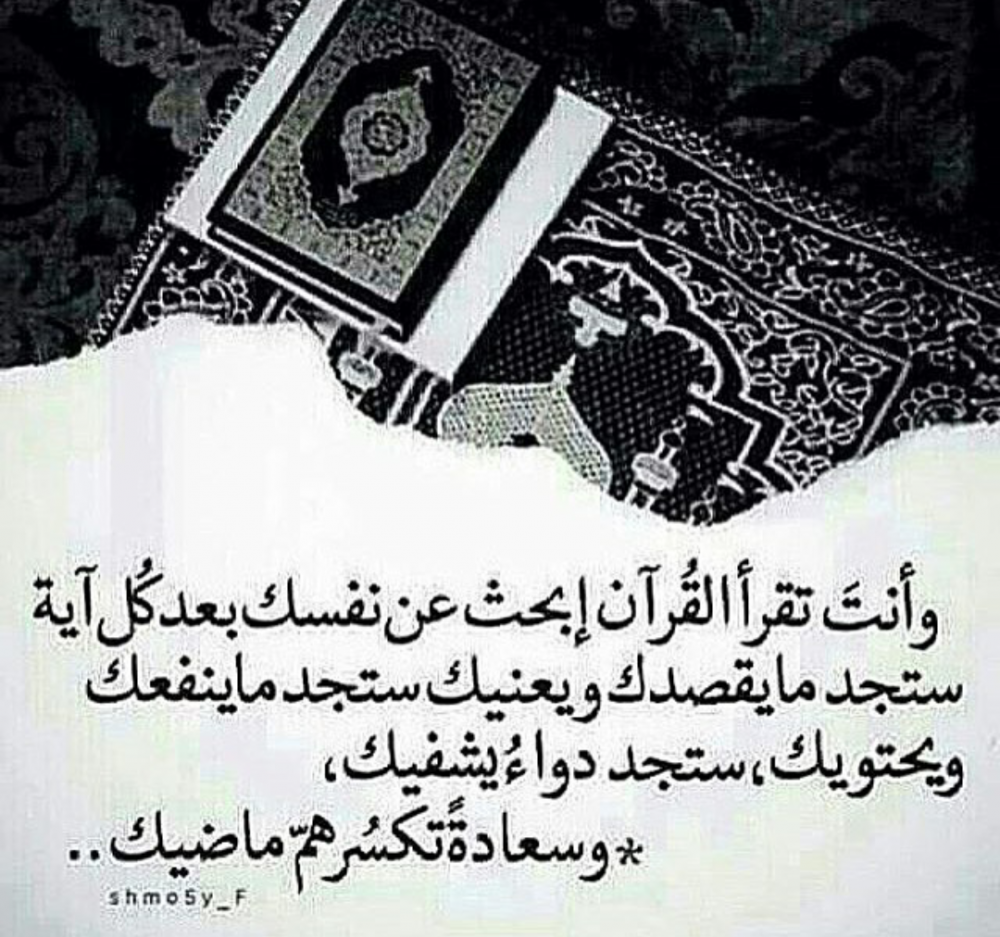 وأنتَ تقرأ القُرآن إبحث عن نفسك بعد كُل آية
ستجد ما يقصدك ويعنيك ستجد ما ينفعك
ويحتويك، ستجد دواءُ يشفيك،
*وسعادةً تكسُر همّ ماضيك..
shmo5y_F